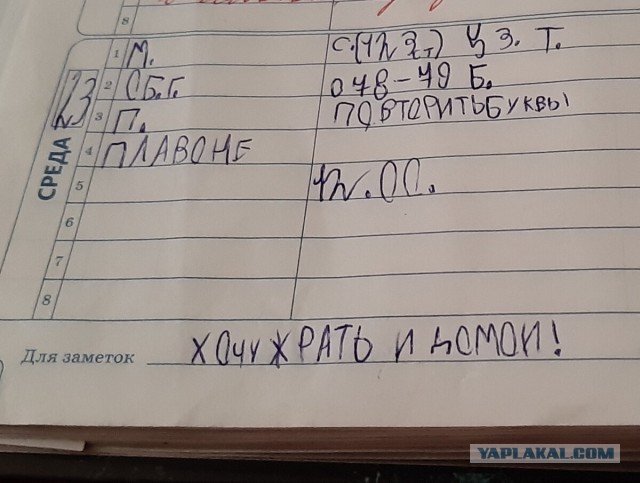 8
СРЕДА 23
1 М. с.(12 з.т) У з. Т.
2 ОБ.Г. 048-49 Б.
3 П. ПОВТОРИТЬ БУКВЫ
4 ПЛАВОНЕ
5 12.00.
6
7
8
Для заметок ХОЧУ ЖРАТЬ И ДОМОЙ!
YAPLAKAL.COM